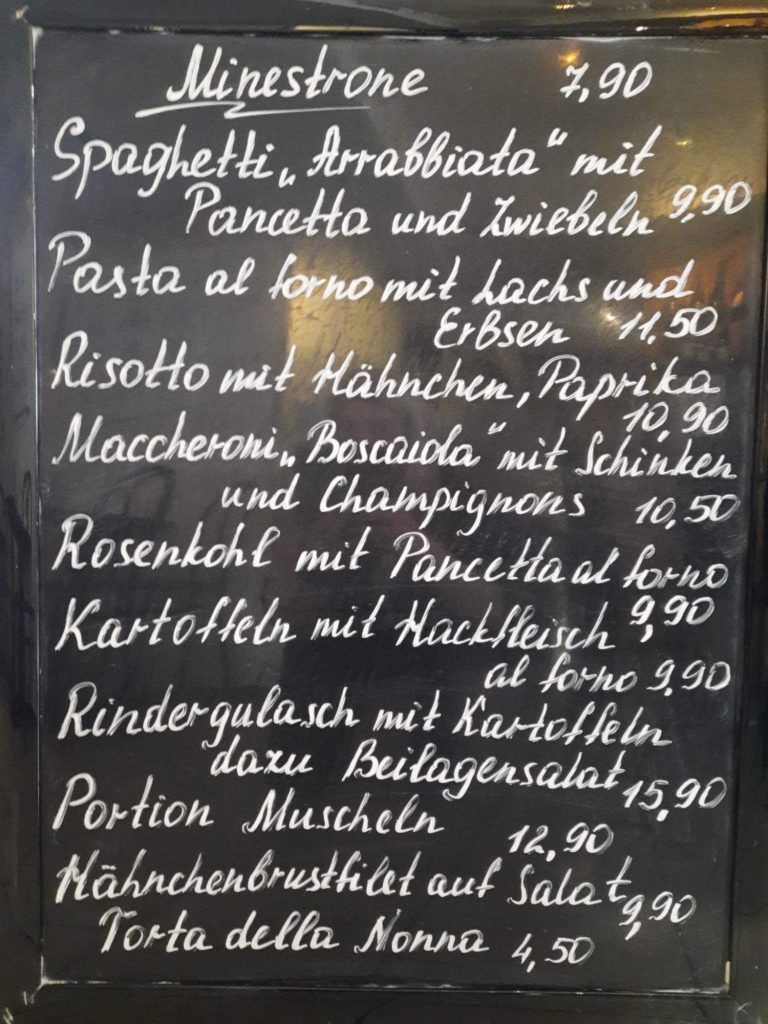 Minestrone 7,90
Spaghetti „Arrabbiata“ mit
Pancetta und Zwiebeln 9,90
Pasta al forno mit Lachs und
Erbsen 11,50
Risotto mit Hähnchen, Paprika
10,90
Maccheroni „Boscaiola“ mit Schinken
und Champignons 10,50
Rosenkohl mit Pancetta al forno
9,90
Kartoffeln mit Hackfleisch
al forno 9,90
Rindergulasch mit Kartoffeln
dazu Beilagensalat 15,90
Portion Muscheln 12,90
Hähnchenbrustfilet auf Salat 9,90
Torta della Nonna 4,50